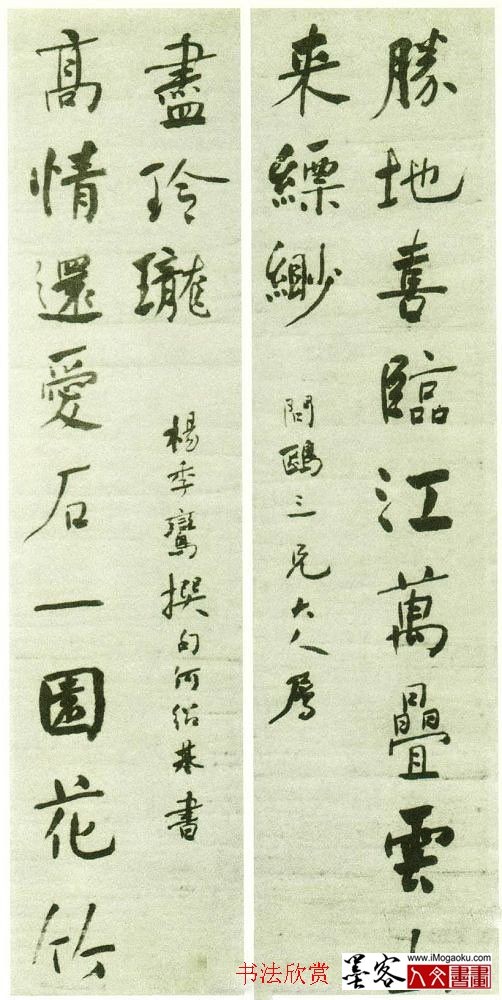 勝地喜臨江萬疊雲
来縹緲
問鷗三兄大人屬
高情還愛石一園花竹
盡玲瓏
楊季鸞撰句何紹基書
书法欣赏
墨客
www.iMogaoku.com
人文書畫